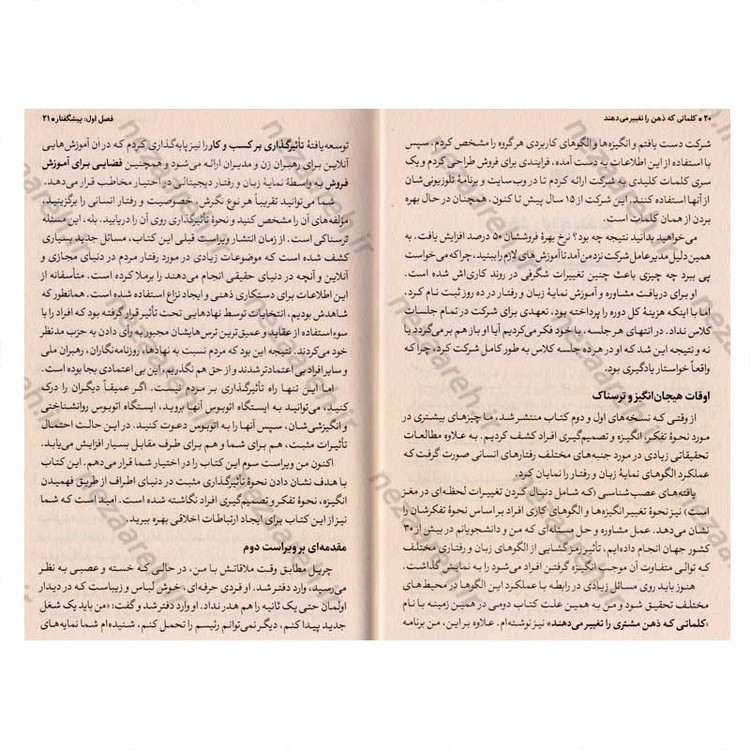 ۲۰ • کلماتی که ذهن را تغییر می‌دهند
شرکت دست یافتم و انگیزه‌ها و الگوهای کاربردی هر گروه را مشخص کردم. سپس
با استفاده از این اطلاعات به دست آمده، فرایندی برای فروش طراحی کردم و یک
سری کلمات کلیدی به شرکت ارائه کردم تا در وب‌سایت و برنامهٔ تلویزیونی‌شان
از آنها استفاده کنند. این شرکت از ۱۵ سال پیش تا کنون، همچنان در حال بهره
بردن از همان کلمات است.
می‌خواهید بدانید نتیجه چه بود؟ نرخ بهرهٔ فروششان ۵۰ درصد افزایش یافت. به
همین دلیل مدیرعامل شرکت نزد من آمد تا آموزش‌های لازم را ببیند، چراکه می‌خواست
پی ببرد چه چیزی باعث چنین تغییرات شگرفی در روند کاری‌اش شده است.
او برای دریافت مشاوره و آموزش نمایهٔ زبان و رفتار در ده روز ثبت نام کرد،
اما با اینکه هزینهٔ کل دوره را پرداخته بود، تعهدی برای شرکت در تمام جلسات
کلاس نداد. در انتهای هر جلسه، با خود فکر می‌کردیم آیا او باز هم برمی‌گردد یا
نه و نتیجه این شد که او در هر ده جلسه کلاس به طور کامل شرکت کرد، چرا که
واقعاً خواستار یادگیری بود.
اوقات هیجان‌انگیز و ترسناک
از وقتی که نسخه‌های اول و دوم کتاب منتشر شد، ما چیزهای بیشتری در
مورد نحوهٔ تفکر، انگیزه و تصمیم‌گیری افراد کشف کردیم. به علاوه مطالعات
تحقیقاتی زیادی در مورد جنبه‌های مختلف رفتارهای انسانی صورت گرفت که
عملکرد الگوهای نمایهٔ زبان و رفتار را نمایان کرد.
یافته‌های عصب‌شناسی (که شامل دنبال کردن تغییرات لحظه‌ای در مغز
است) نیز نحوهٔ تغییر انگیزه‌ها و الگوهای کاری افراد بر اساس نحوهٔ تفکرشان را
نشان می‌دهد. عمل مشاوره و حل مسئله‌ای که من و دانشجویانم در بیش از ۳۰
کشور جهان انجام داده‌ایم، تأثیر رمزگشایی از الگوهای زبان و رفتاری مختلف
که توالی متفاوت آن موجب انگیزه گرفتن افراد می‌شود را به نمایش گذاشت.
هنوز باید روی مسائل زیادی در رابطه با عملکرد این الگوها در محیط‌های
مختلف تحقیق شود و من به همین علت کتاب دومی در همین زمینه با نام
«کلماتی که ذهن مشتری را تغییر می‌دهند» نیز نوشته‌ام. علاوه بر این، من برنامه
فصل اول: پیشگفتار • ۲۱
توسعه‌یافتهٔ تأثیرگذاری بر کسب و کار را نیز پایه‌گذاری کردم که در آن آموزش‌هایی
آنلاین برای رهبران زن و مدیران ارائه می‌شود و همچنین فضایی برای آموزش
فروش به واسطهٔ نمایهٔ زبان و رفتار دیجیتالی در اختیار مخاطب قرار می‌دهد.
شما می‌توانید تقریباً هر نوع نگرش، خصوصیت و رفتار انسانی را برگزینید،
مؤلفه‌های آن را مشخص کنید و نحوهٔ تأثیرگذاری روی آن را دریابید. بله، این مسئله
ترسناکی است. از زمان انتشار ویراست قبلی این کتاب، مسائل جدید بسیاری
کشف شده است که موضوعات زیادی در مورد رفتار مردم در دنیای مجازی و
آنلاین و آنچه در دنیای حقیقی انجام می‌دهند را برملا کرده است. متأسفانه از
این اطلاعات برای دستکاری ذهنی و ایجاد نزاع استفاده شده است، همانطور که
شاهدش بودیم، انتخابات توسط نهادهایی تحت تأثیر قرار گرفته بود که افراد را با
سوءاستفاده از عقاید و عمیق‌ترین ترس‌هایشان مجبور به رأی دادن به حزب مدنظر
خود می‌کردند. نتیجه این بود که مردم نسبت به نهادها، روزنامه‌نگاران، رهبران ملی
و سایر افراد بی اعتمادتر شدند و از حق هم نگذریم، این بی اعتمادی بجا بوده است.
اما این تنها راه تأثیرگذاری بر مردم نیست. اگر عمیقاً دیگران را درک
کنید، می‌توانید به ایستگاه اتوبوس آنها بروید، ایستگاه اتوبوس روانشناختی
و انگیزشی‌شان، سپس آنها را به اتوبوس دعوت کنید. در این حالت احتمال
تأثیرات مثبت، هم برای شما و هم برای طرف مقابل بسیار افزایش می‌یابد.
اکنون من ویراست سوم این کتاب را در اختیار شما قرار می‌دهم. این کتاب
با هدف نشان دادن نحوهٔ تأثیرگذاری مثبت در دنیای اطراف از طریق فهمیدن
انگیزه، نحوهٔ تفکر و تصمیم‌گیری افراد نگاشته شده است. امید است که شما
نیز از این کتاب برای ایجاد ارتباطات اخلاقی بهره ببرید.
مقدمه‌ای بر ویراست دوم
چریل مطابق وقت ملاقاتش با من، در حالی که خسته و عصبی به نظر
می‌رسید، وارد دفتر شد. او فردی حرفه‌ای، خوش لباس و زیباست که در دیدار
اولمان حتی یک ثانیه را هم هدر نداد. او وارد دفتر شد و گفت: «من باید یک شغل
جدید پیدا کنم، دیگر نمی‌توانم رئیسم را تحمل کنم، شنیده‌ام شما نمایه‌های
nezaareh.ir